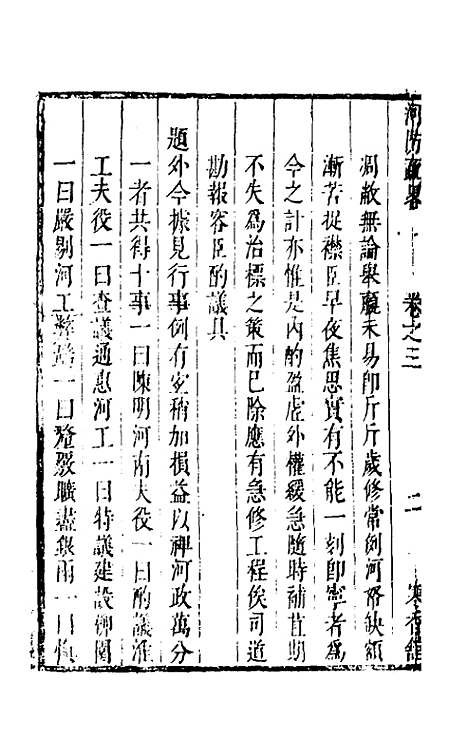 河防疏畧 卷之三 二
凋敝無論舉贏未易即斤斤歲修常例河帑缺額
漸苦捉襟臣早夜焦思實有不能一刻即寧者爲
今之計亦惟是內酌盈虛外權緩急隨時補苴期
不失爲治標之策而已除應有急修工程俟司道
勘報容臣酌議具
題外今據見行事例有宜稍加損益以裨河政萬分
一者共得十事一曰陳明河南夫役一曰酌議淮
工夫役一曰查議通惠河工一曰特議建設柳園
一曰嚴剔河工弊端一曰釐覈曠盡銀兩一曰慎